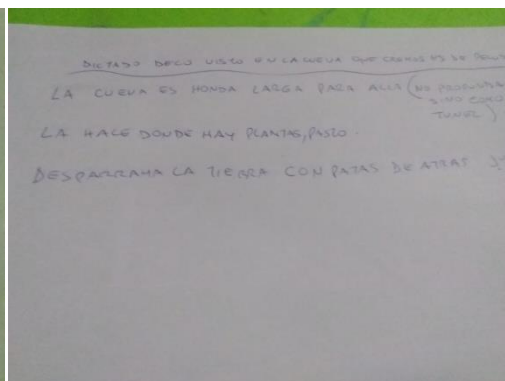 DICTADO DE LO VISTO EN LA CUEVA QUE CREEMOS ES DE
LA CUEVA ES HONDA LARGA PARA ALLA (NO PROFUNDA
SINO COMO
TUNEL)
LA HACE DONDE HAY PLANTAS, PASTO.
DESPARRAMA LA TIERRA CON PATAS DE ATRAS